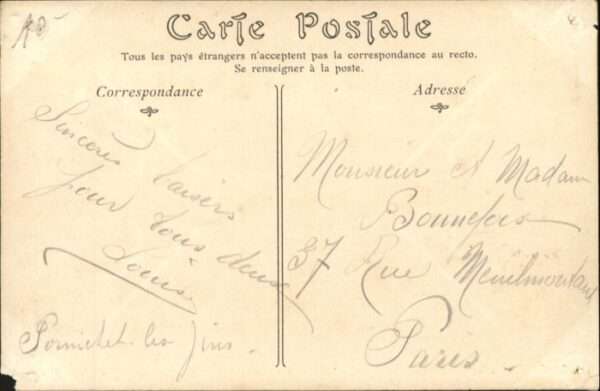 Carte Postale
Tous les pays étrangers n'acceptent pas la correspondance au recto.
Se renseigner à la poste.
Correspondance
Sincères baisers
pour tous deux
Louis
Pornichet les Pins.
Adresse
Monsieur et Madam
37 Rue Menilmontant
Paris